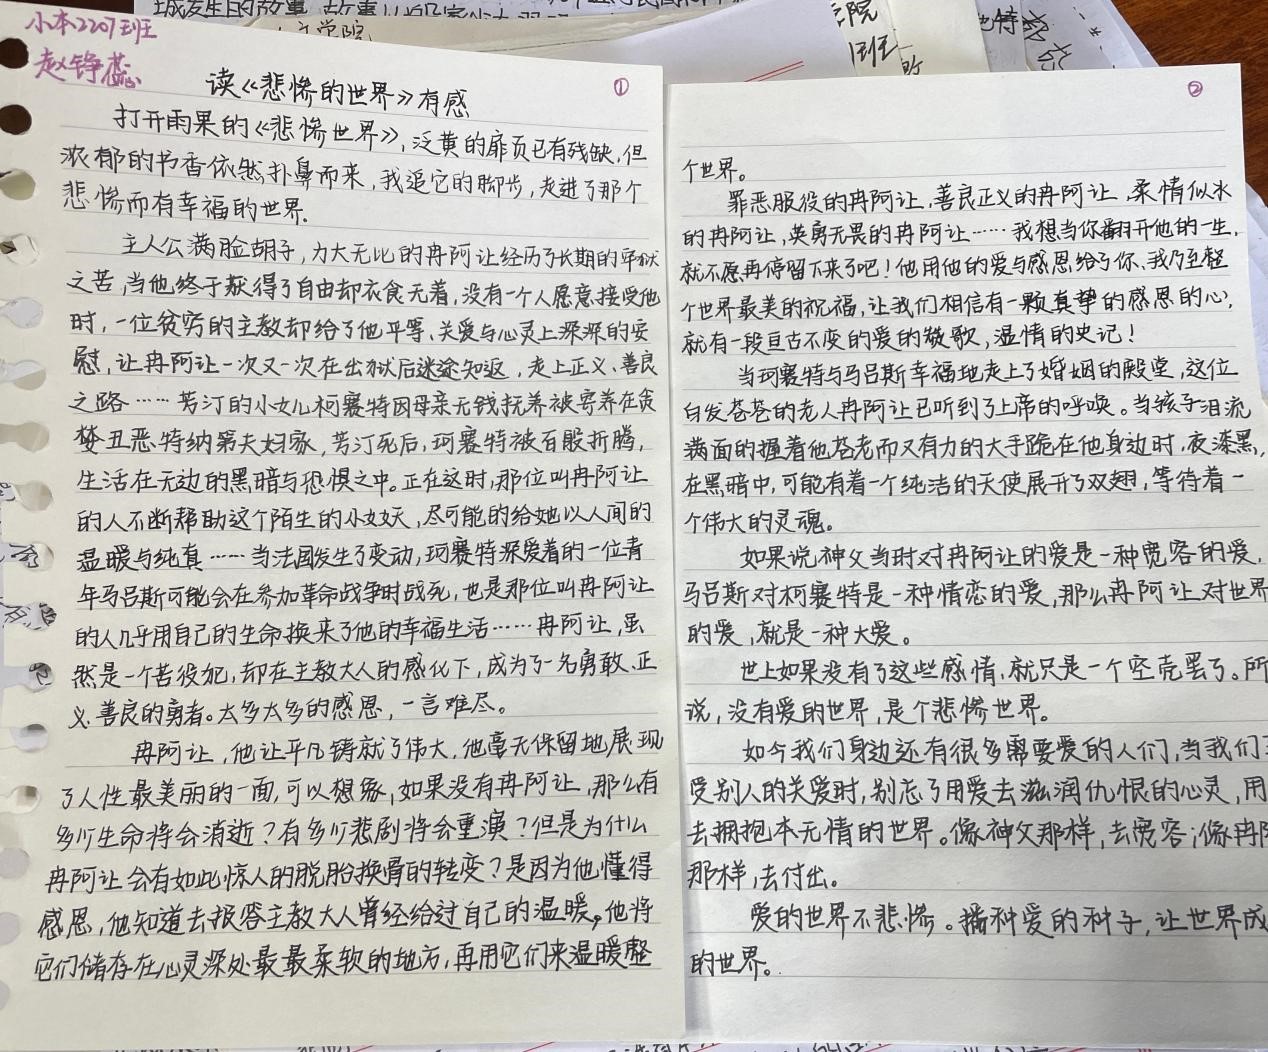 小本2207班
赵铮蕊
读《悲惨的世界》有感
①
打开雨果的《悲惨世界》，泛黄的扉页已有残缺，但
浓郁的书香依然扑鼻而来，我追它的脚步，走进了那个
悲惨而有幸福的世界.
主人公满脸胡子，力大无比的冉阿让经历了长期的牢狱
之苦，当他终于获得了自由却衣食无着，没有一个人愿意接受他
时，一位贫穷的主教却给了他平等、关爱与心灵上深深的安
慰，让冉阿让一次又一次在出狱后迷途知返，走上正义、善良
之路……芳汀的小女儿柯赛特因母亲无钱抚养被寄养在贪
婪丑恶特纳第夫妇家，芳汀死后，珂赛特被百般折腾，
生活在无边的黑暗与恐惧之中。正在这时，那位叫冉阿让
的人不断帮助这个陌生的小女孩，尽可能的给她以人间的
温暖与纯真……当法国发生了变动，珂赛特深爱着的一位青
年马吕斯可能会在参加革命战争时战死，也是那位叫冉阿让
的人几乎用自己的生命换来了他的幸福生活……冉阿让，虽
然是一个苦役犯，却在主教大人的感化下，成为了一名勇敢、正
义、善良的勇者。太多太多的感恩，一言难尽。
冉阿让，他让平凡铸就了伟大，他毫无保留地展现
了人性最美丽的一面，可以想象，如果没有冉阿让，那么有
多少生命将会消逝？有多少悲剧将会重演？但是为什么
冉阿让会有如此惊人的脱胎换骨的转变？是因为他懂得
感恩，他知道去报答主教大人曾经给过自己的温暖，他将
它们储存在心灵深处最最柔软的地方，再用它们来温暖整
②
个世界。
罪恶服役的冉阿让，善良正义的冉阿让，柔情似水
的冉阿让，英勇无畏的冉阿让……我想当你翻开他的一生，
就不愿再停留下来了吧！他用他的爱与感恩给了你、我乃至整
个世界最美的祝福，让我们相信有一颗真挚的感恩的心，
就有一段亘古不变的爱的敬歌，温情的史记！
当珂赛特与马吕斯幸福地走上了婚姻的殿堂，这位
白发苍苍的老人冉阿让已听到了上帝的呼唤。当孩子泪流
满面的握着他苍老而又有力的大手跪在他身边时，夜漆黑，
在黑暗中，可能有着一个纯洁的天使展开了双翅，等待着一
个伟大的灵魂。
如果说神父当时对冉阿让的爱是一种宽容的爱，
马吕斯对柯赛特是一种情恋的爱，那么冉阿让对世界
的爱，就是一种大爱。
世上如果没有了这些感情，就只是一个空壳罢了。所
说，没有爱的世界，是个悲惨世界。
如今我们身边还有很多需要爱的人们，当我们
受别人的关爱时，别忘了用爱去滋润仇恨的心灵，用
去拥抱本无情的世界。像神父那样，去宽容；像冉阿
那样，去付出。
爱的世界不悲惨。播种爱的种子，让世界成
的世界。